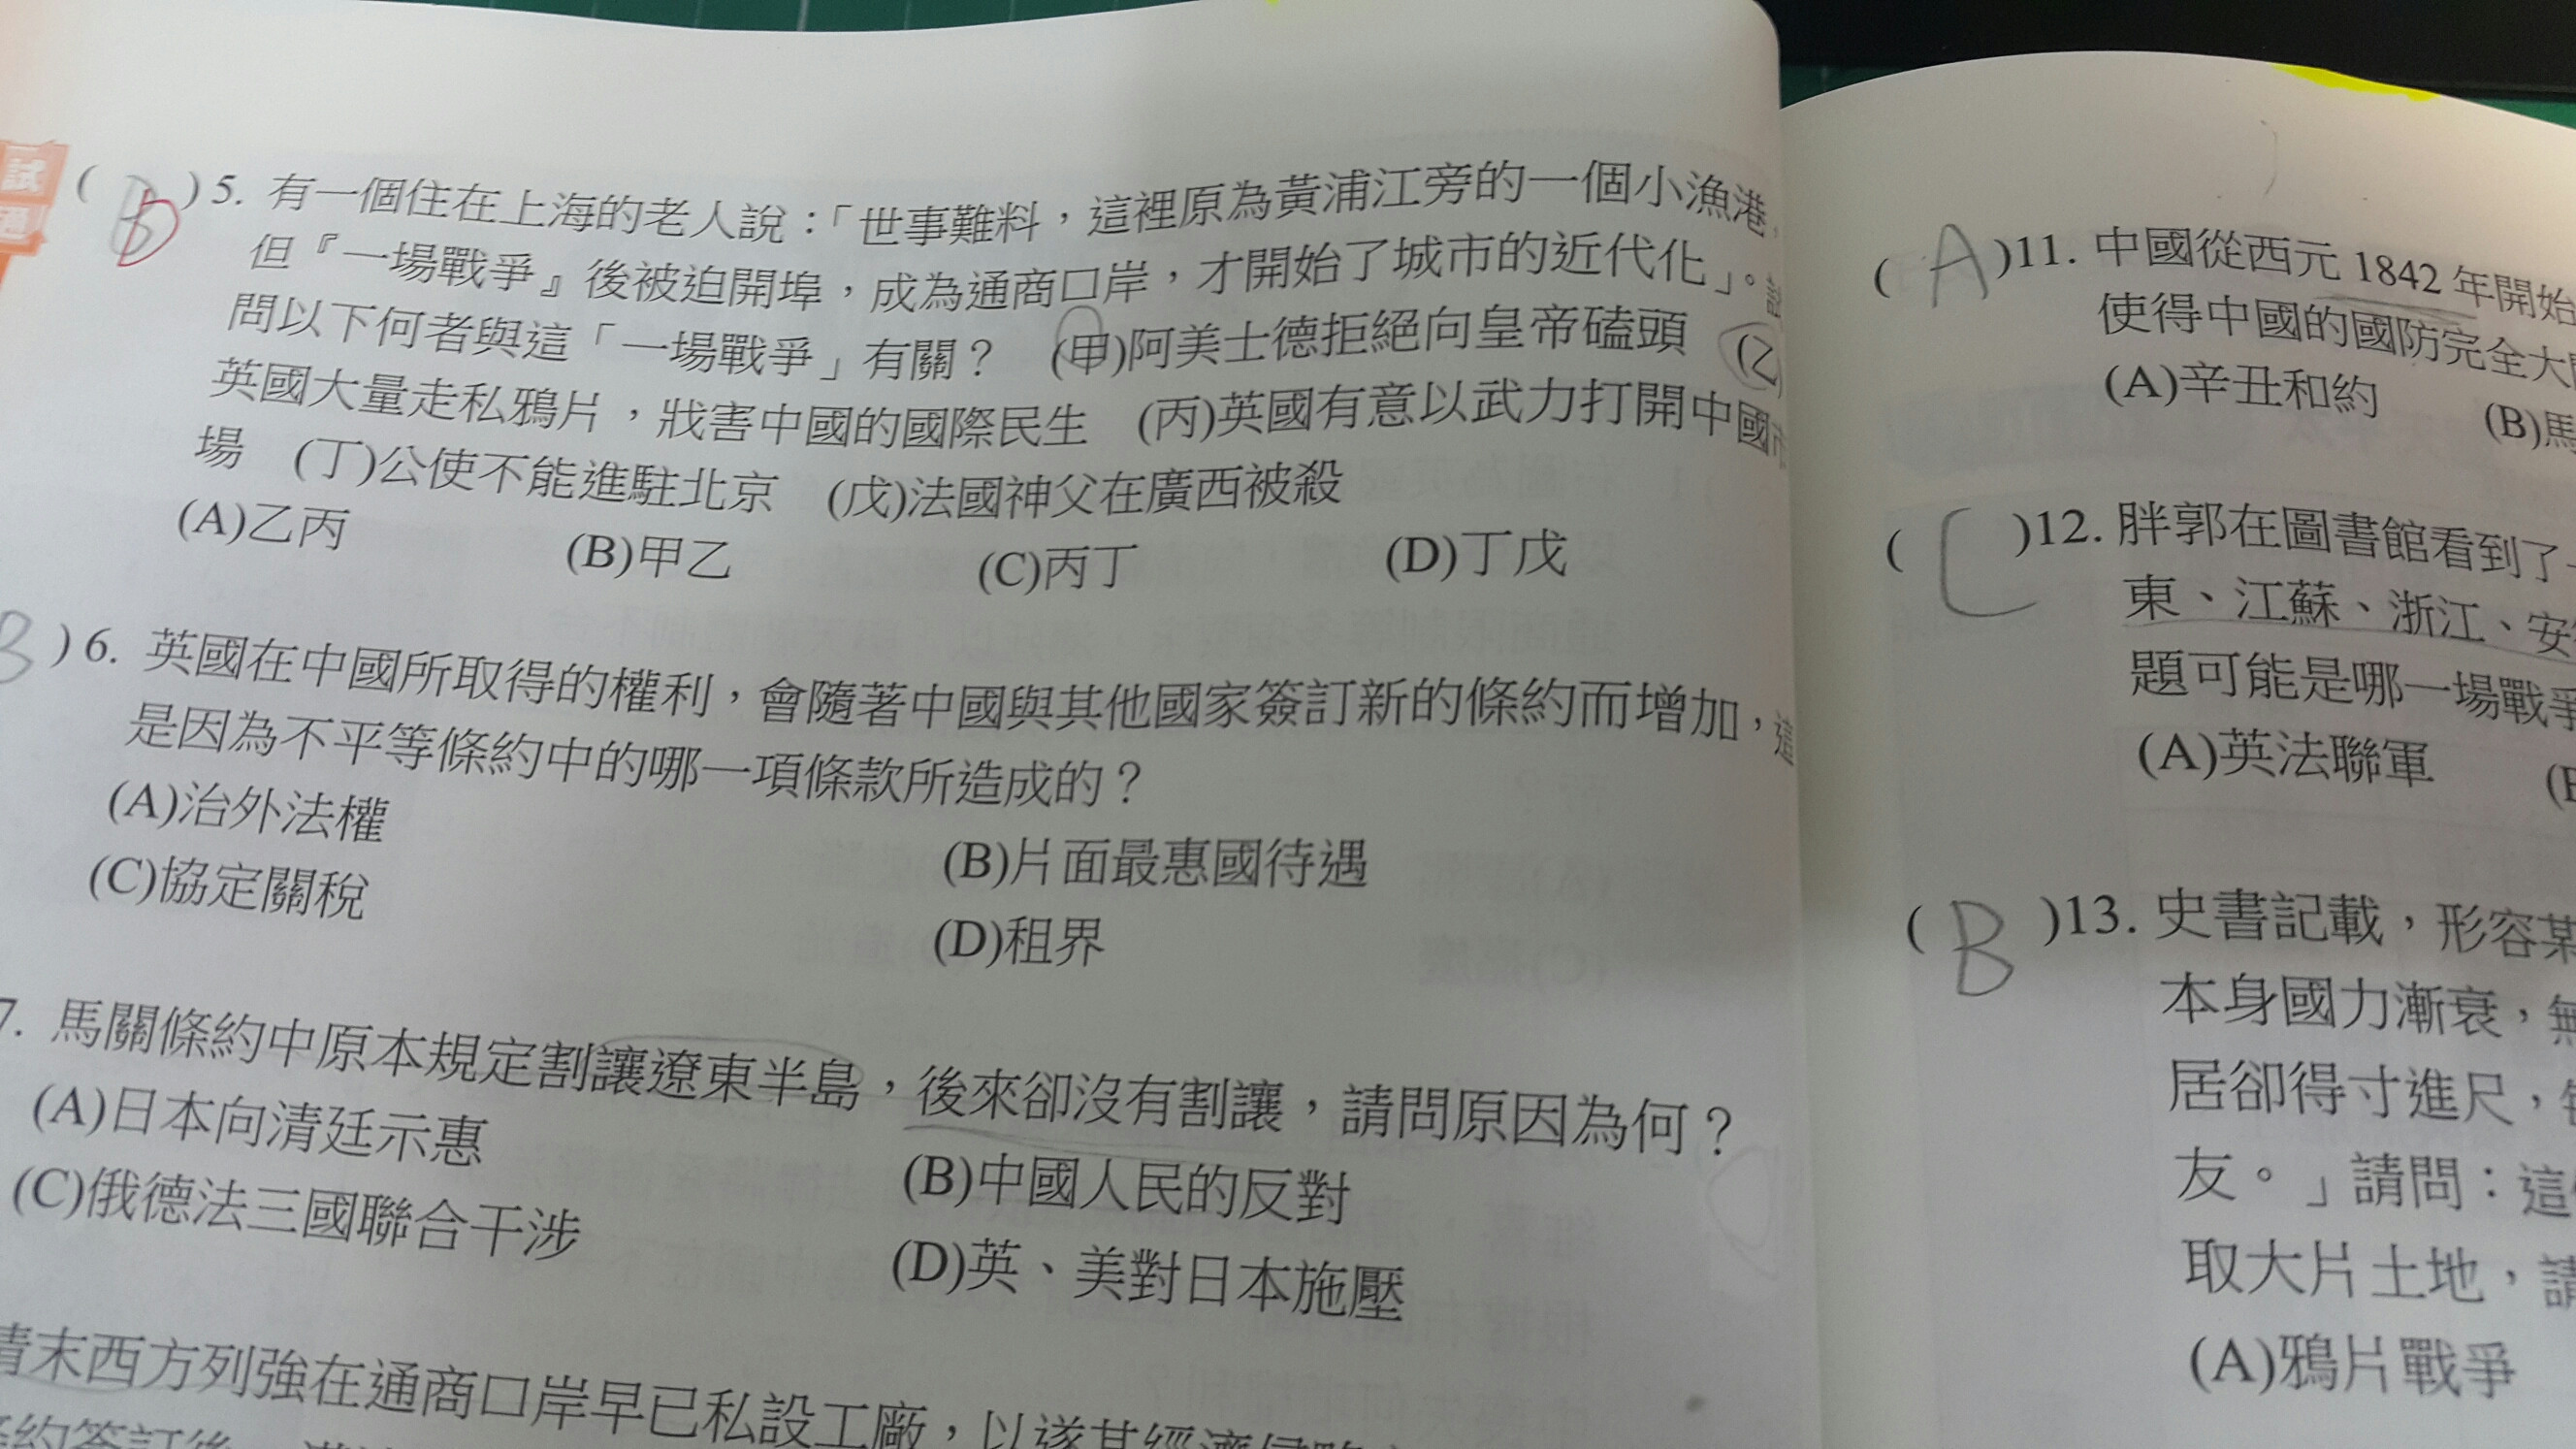 試
( B D )5. 有一個住在上海的老人說：「世事難料，這裡原為黃浦江旁的一個小漁港，
但『一場戰爭』後被迫開埠，成為通商口岸，才開始了城市的近代化」。請
問以下何者與這「一場戰爭」有關？ (甲)阿美士德拒絕向皇帝磕頭 (乙)
英國大量走私鴉片，戕害中國的國際民生 (丙)英國有意以武力打開中國市
場 (丁)公使不能進駐北京 (戊)法國神父在廣西被殺
(A)乙丙 (B)甲乙 (C)丙丁 (D)丁戊
B )6. 英國在中國所取得的權利，會隨著中國與其他國家簽訂新的條約而增加，這
是因為不平等條約中的哪一項條款所造成的？
(A)治外法權 (B)片面最惠國待遇
(C)協定關稅 (D)租界
7. 馬關條約中原本規定割讓遼東半島，後來卻沒有割讓，請問原因為何？
(A)日本向清廷示惠 (B)中國人民的反對
(C)俄德法三國聯合干涉 (D)英、美對日本施壓
清末西方列強在通商口岸早已私設工廠，以遂其經濟侵略
約簽訂後
( A )11. 中國從西元 1842 年開始
使得中國的國防完全大開
(A)辛丑和約 (B)馬
( C )12. 胖郭在圖書館看到了一
東、江蘇、浙江、安
題可能是哪一場戰爭
(A)英法聯軍
( B )13. 史書記載，形容某
本身國力漸衰，無
居卻得寸進尺，
友。」請問：這
取大片土地，請
(A)鴉片戰爭